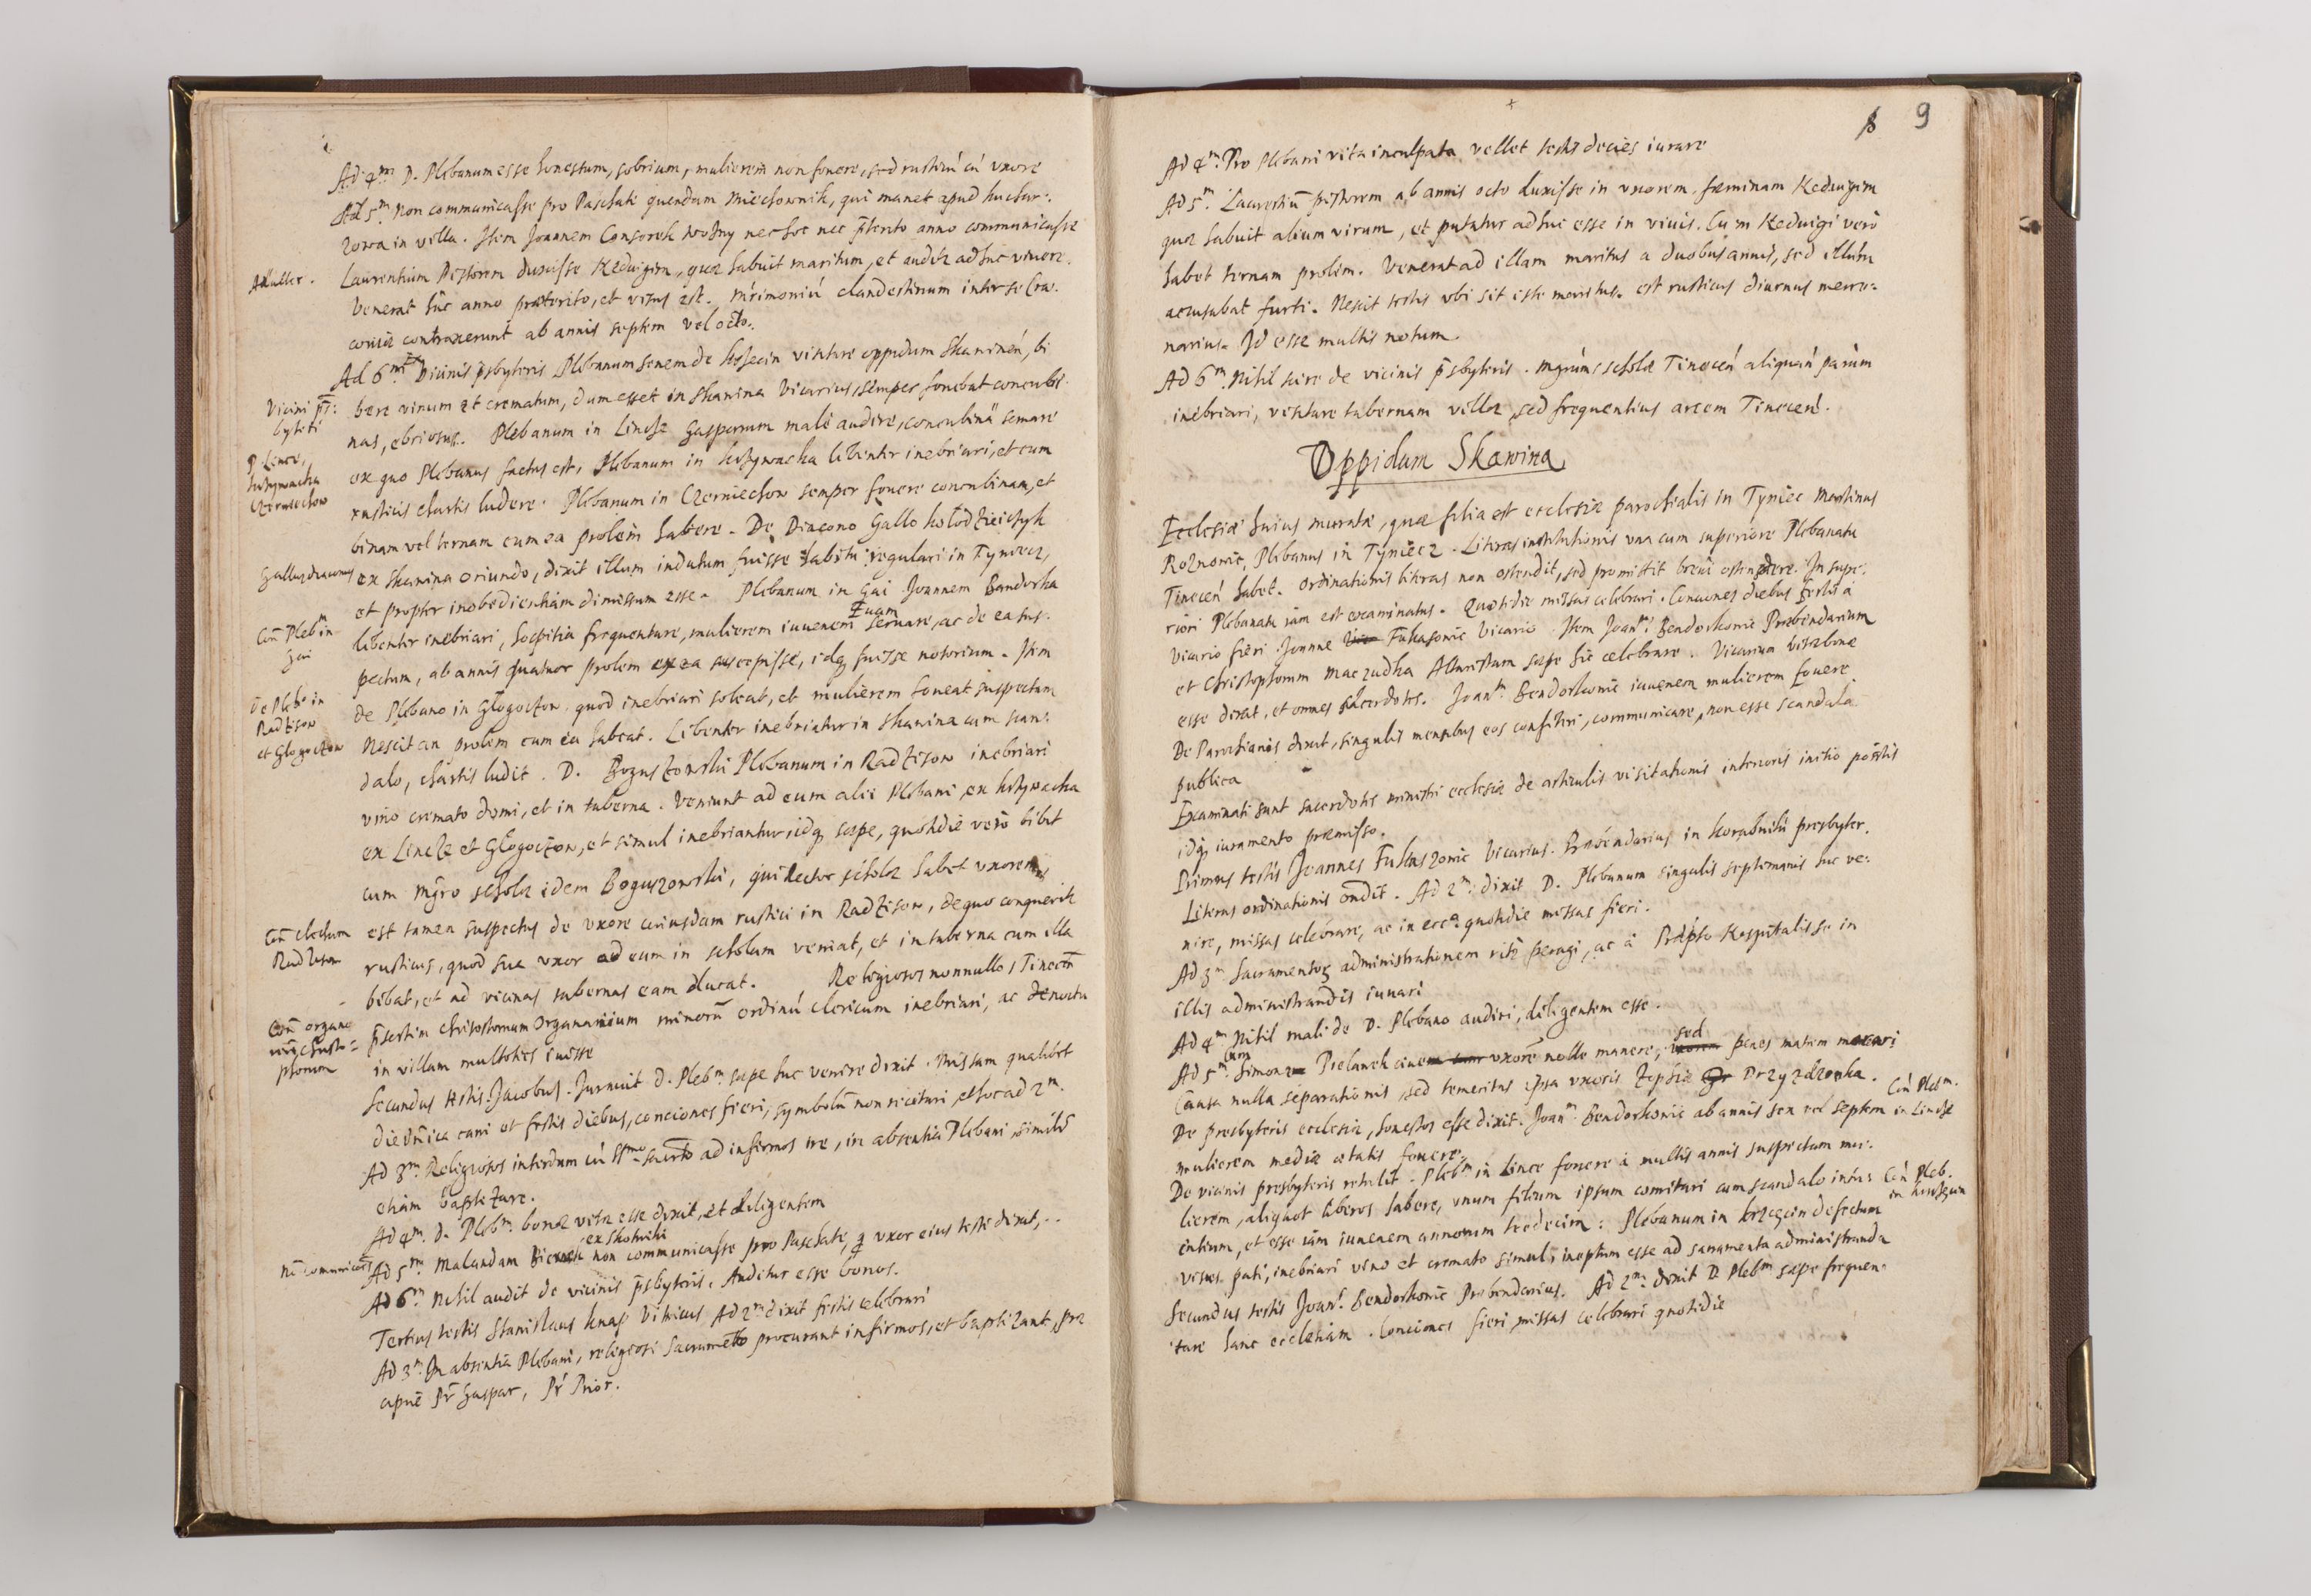 Ad 4m. D. Plebanum esse honestum, sobrium, mulierem non fouere, sed rusticũ cũ vxore
Ad 5m. Non communicasse pro Paschate quendam Miechownik, qui manet apud
in villa. Item Joannem Wozny nec hoc nec p̃terito anno communicasse
Adulter. Laurentium Pistorem duxisse Heduigim, quæ habuit maritum, et auditr adhuc viuere.
Venerat huc anno præterito, et visus est. Mr̃imoniũ clandestinum inter se Cra-
couiæ contraxerunt ab annis septem vel octo.
Ad 6m. Vicinis p̃sbyteris Plebanum senem de visitare oppidum Skawineñ, bi
Vicini p̃s: byteri
bere vinum et crematum, dum esset in Skawina Vicarius, semper fouebat concubi-
nas, ebriosus. Plebanum in Lincze Gasparum malè audire, concubinã seruare
P. Lince, Krzywacka Czerniechow
ex quo Plebanus factus est, Plebanum in Krzywacka libenter inebriari, et cum
rusticis chartis ludere. Plebanum in Czerniechow semper fouere concubinam, et
binam vel ternam cum ea prolem habere. De Diacono Gallo Kolodzieiczyk
Gallus diaconus ex Skawina oriundo, dixit illum indutum fuisse habitu regulari in Tyniecz,
et propter inobedientiam dimissum esse. Plebanum in Gai Joannem Bandorka
Con Plebm in Gai
libenter inebriari, hospitia frequentare, mulierem iuuenem suam seruare, ac de ea sus-
pectum, ab annis quatuor prolem ex ea suscepisse, idq fuisse notorium. Item
De Plebo in Radziszow et Glogoczow
de Plebano in Glogoczow, quod inebriari soleat, et mulierem foueat suspectam
Nescit an prolem cum ea habeat. Libenter inebriatur in Skawina cum scan-
dalo, chartis ludit. D. Boguszowski Plebanum in Radziszow inebriari
vino cremato domi, et in taberna. Veniunt ad eum alii Plebani, ex Krzywacka
ex Lincze et Glogoczow, et simul inebriantur, idq sæpe, quotidie verò bibit
cum Mgr̃o scholæ idem Boguszowski, qui Rector scholæ habet vxorem
Con clechum Radziszow
est tamen suspectus de vxore cuiusdam rustici in Radziszow, de quo conqueritr
rusticus, quod sua vxor ad eum in scholam veniat, et in taberna cum illa
bibat, et ad vicinas tabernas eam ducat. Religiosos nonnullos Tinecen̄
p̃sertim Chrisostomum Organarium minorũ ordinũ clericum inebriari, ac denoctu
in villam multoties iuisse
Secundus testis. Jacobus. Jurauit. D. Plebm sæpe huc venire dixit. Missam qualibet
die dñica cani et festis diebus, conciones fieri, symbolũ non recitari, et hoc ad 2m.
Ad 3m. Religiosos interdum cũ SSmo Sacrto ad infirmos ire, in absentia Plebani, similr
etiam baptizare.
Ad 4m. D. Plebm bonæ vitæ esse dixit, et diligentem
ex Skotniki
Ad 5m. Malandam non communicasse pro Paschate, q vxor eius testi dixit,
Ad 6m. Nihil audit de vicinis p̃sbyteris. Auditur esse bonos.
Tertius testis Stanislaus Knap Vitricus. Ad 2m. dixit festis celebrari
Ad 3m. In absentia Plebani, religiosi Sacrameto procurant infirmos, et baptizant, præ
cipuè Pr Gaspar, Pr Prior.
8 9
Ad 4m. Pro Plebani vita inculpata vellet testis decies iurare
Ad 5m. Laurentiũ pistorem ab annis octo duxisse in vxorem fæminam Heduigim
quæ habuit alium virum, et putatur adhuc esse in viuis. Cum Heduigi verò
habet ternam prolem. Venerat ad illam maritus a duobus annis, sed illum
accusabat furti. Nescit testis vbi sit iste maritus. est rusticus diurnus merce-
narius. Id esse multis notum
Ad 6m. Nihil scire de vicinis p̃sbyteris. Mgrũm scholæ Tineceñ aliquañ parùm
inebriari, visitare tabernam villæ, sed frequentius arcem Tineceñ.
Oppidum Skawina
Ecclesiæ huius muratæ, quæ filia est ecclesiæ parochialis in Tyniec Martinus
Roznowic, Plebanus in Tyniecz. Literas institutionis vna cum superiore Plebanatu
Tineceñ habet. Ordinationis literas non ostendit, sed promittit breui ostendere. In supe-
riori Plebanatu iam est examinatus. Quotidie missas celebrari. Conciones diebus festis à
Vicario fieri Joanne Fukasowic Vicario. Item Joanm Bendorkowic Præbendarium
et Christophorum Maczudka Altaristam sæpe hic celebrare. Vicarium vitæ bonæ
esse dixit, et omnes sacerdotes. Joanm Bendorkowic iuuenem mulierem fouere
De Parochianis dixit, singulis mensibus eos confiteri, communicare, non esse scandala
publica
Examinati sunt sacerdotes ministri ecclesiæ de articulis visitationis interioris initio positis
idq iuramento præmisso.
Primus testis Joannes Fukaszowic Vicarius. Præbendarius in Korabniki presbyter.
Literas ordinationis on̄dit. Ad 2m: dixit D. Plebanum singulis septimanis huc ve-
nire, missas celebrare, ac in ecca quotidie missas fieri.
Ad 3m. Sacramentoȝ administrationem ritè peragi, ac à Præpto Hospitalis se in
illis administrandis iuuari
Ad 4m. Nihil mali de D. Plebano audiri, diligentem esse.
Ad 5m. Simone Pielanek ciue cum vxore nolle manere, sed penes matrem
Causa nulla separationis, sed temeritas ipsa vxoris Przyzdzonka.
De presbyteris ecclesiæ, honestos esse dixit. Joanm Bendorkowic ab annis sex vel septem
Con Plebm. in Lincze
mulierem mediæ ætatis fouere.
De vicinis presbyteris retulit. Plebm in Lince fouere à multis annis suspectam mu-
lierem, aliquot liberos habere, vnum filium ipsum comitari cum scandalo intu-
Con Pleb.
entium, et esse iam iuuenem annorum tredecim: Plebanum in Krzęcin defectum
visus pati, inebriari vino et cremato simul, ineptum esse ad sacramenta administranda
Secundus testis Joans Bendorkowic Præbendarius. Ad 2m: dixit D. Plebm sæpe frequen-
tare hanc ecclesiam. Conciones fieri, missas celebrari quotidie